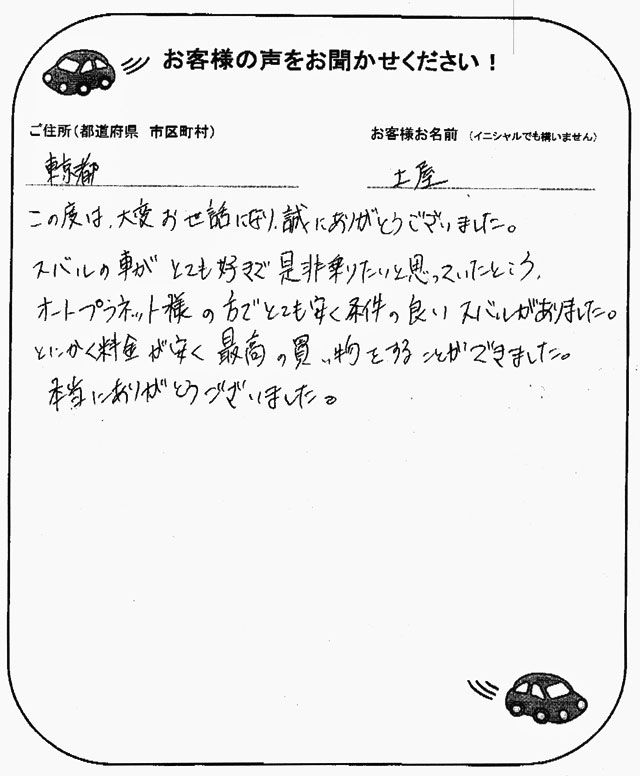 お客様の声をお聞かせください！
ご住所（都道府県 市区町村） お客様お名前 （イニシャルでも構いません）
東京都 土屋
この度は、大変お世話になり、誠にありがとうございました。
スバルの車がとても好きで是非乗りたいと思っていたところ、
オートプラネット様の方でとても安く条件の良いスバルがありました。
とにかく料金が安く最高の買い物をすることができました。
本当にありがとうございました。